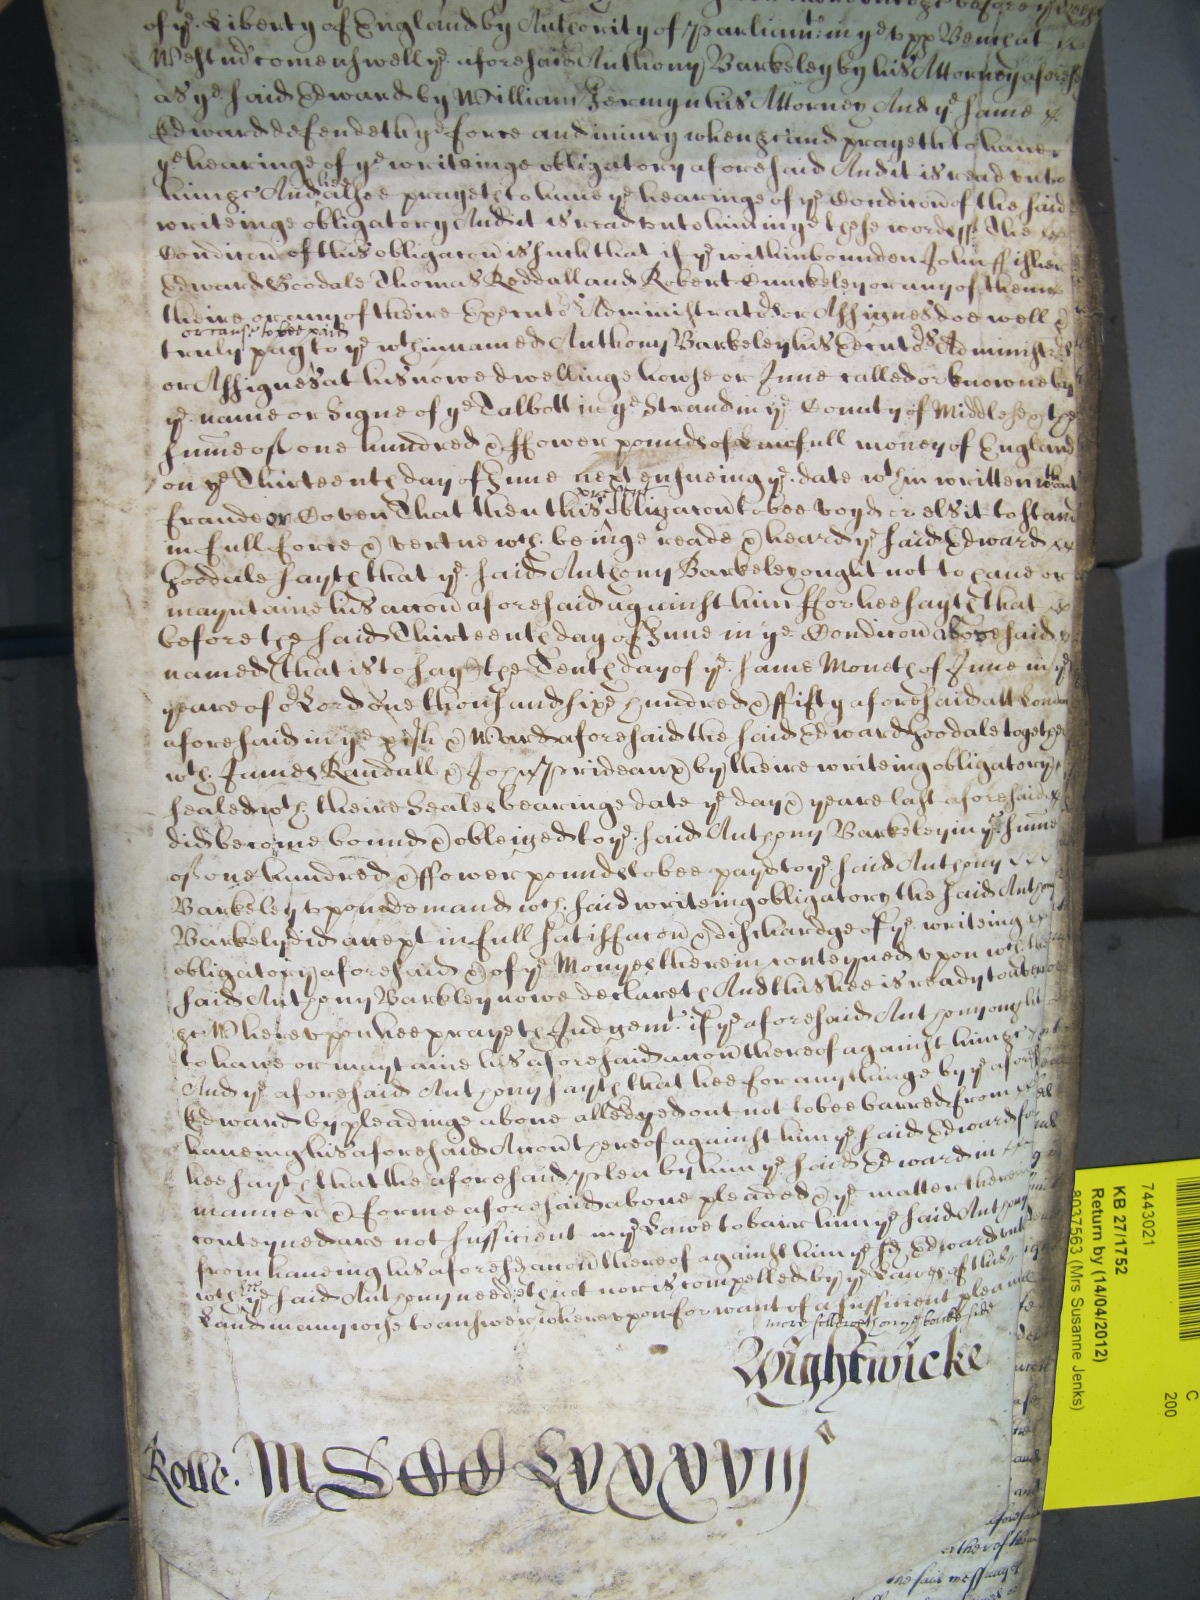 of ye Liberty of England by Authority of Parliamt: in ye vpp Bench at
Westmr come aswell ye aforesaid Anthony Barkeley by his Attorney aforesd
as ye said Edward by William Jermyn his Attorney And ye same
Edward defendeth ye force and iniury when &c and prayeth to haue
ye hearinge of ye writeinge obligatory aforesaid And it is read vnto
him &c And hee alsoe prayeth to haue ye hearinge of ye Condicon of the said
writeinge obligatory And it is read vnto him in ye these words ss The
Condicon of this obligacon is such that if ye within bounden John ffisher
Edward Goodale Thomas Reddall and Robert Dunckeley or any of them
theire or any of theire Executors Administrators or Assignes doe well &
or cause to bee paid
truly pay to ye wthin named Anthony Barkeley his Executors Administrs
or Assignes at his nowe dwellinge howse or Inne called or knowne by
ye name or Signe of ye Talbott in ye Strand in ye County of Middlesex the
sume of one hundred & ffower pounds of lawfull money of England
on ye Thirteenth day of June next ensueing ye date wthin written wthout
fraude or Coven That then this prsent obligacon to bee voyd or els it to stand
in full force & vertue wch beinge reade & heard ye said Edward
Goodale sayth that ye said Anthony Barkeley ought not to haue or
mayntaine his accon aforesaid against him ffor hee sayth that
before the said Thirteenth day of June in ye Condicon abovesaid
named (that is to say) the Tenth day of ye same Moneth of June in ye
yeare of or Lord one thousand sixe hundred & ffifty aforesaid att London
aforesaid in ye pish & Ward aforesaid the said Edward Goodale together
wth James Randall & John Prideaux by theire writeing obligatory
sealed wth theire Seales bearinge date ye day & yeare last aforesaid
did become bound & obleiged to ye said Anthony Barkeley in ye sume
of one hundred & ffower pounds to bee payd to ye said Anthony
Barkeley vpon demand wch said writeing obligatory the said Anthony
Barkely did accept in full satisfaccon & dischardge of ye writeing
obligatory aforesaid & of ye Monyes therein conteyned vpon wch the
said Anthony Barkley nowe declareth And this hee is ready to averr
&c Wherevpon hee prayeth Judgemt: if ye aforesaid Anthony ought
to haue or mayntaine his aforesaid accon thereof against him &c
And ye aforesaid Anthony sayth that hee for any thinge by ye aforesaid
Edward by pleadinge aboue alledged out not to bee barred from
haueing his aforesaid Accon thereof against him ye said Edward for
hee sayth that the aforesaid plea by him ye said Edward in
manner & forme aforesaid aboue pleaded & ye matter therein
conteyned are not sufficient in ye Lawe to barr him ye said Anthony
from haueing his aforesd accon thereof against him ye sd Edward vnto
wch hee ye said Anthony needeth not nor is compelled by ye Lawes of this
Land in any wise to answer wherevpon for want of a sufficient plea
more followeth on ye backe side
Wightwicke
Rolle. MDCCLxxxviij
7443021
KB 27/1752
Return by (14/04/2012)
8037563 (Mrs Susanne Jenks)
C
200